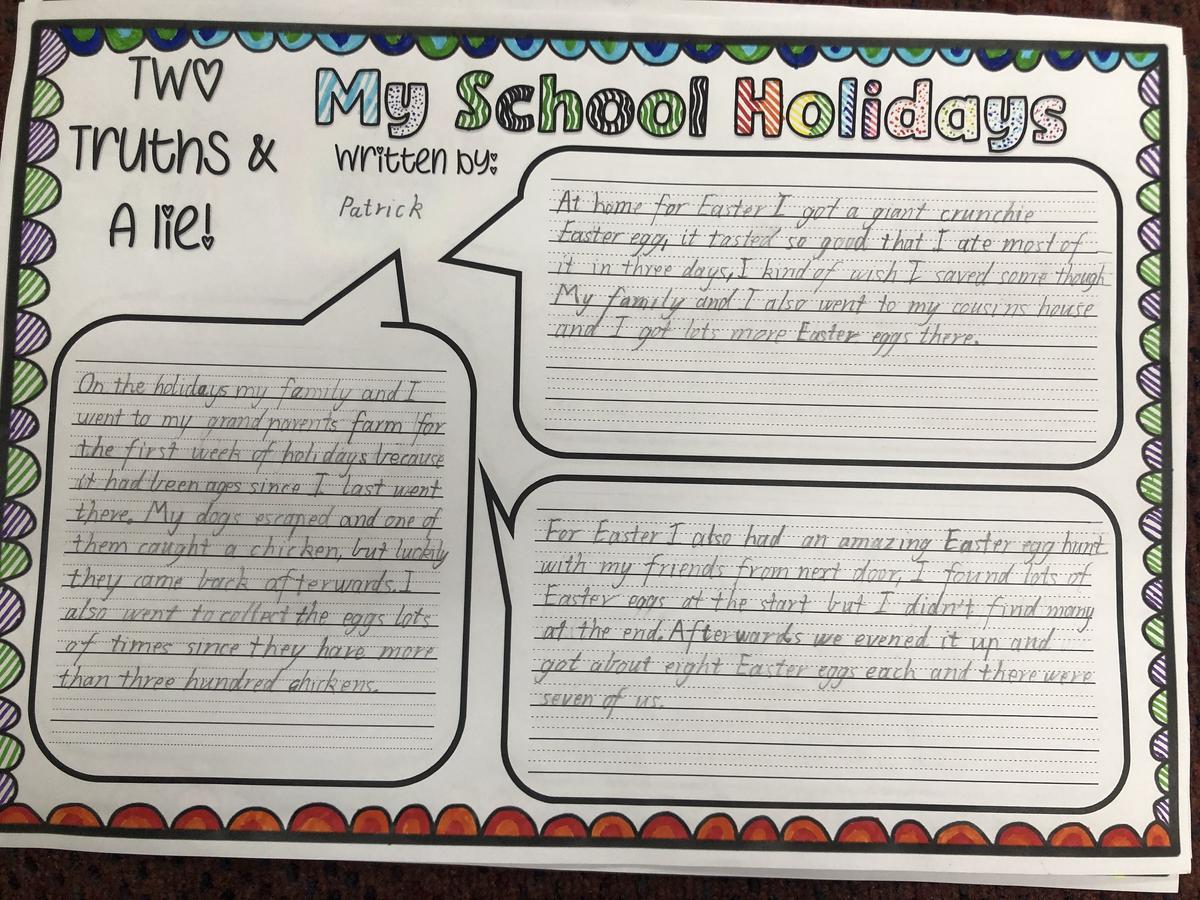 Two
Truths &
A lie!
My School Holidays
Written by:
Patrick
At home for Easter I got a giant crunchie
Easter egg, it tasted so good that I ate most of
it in three days, I kind of wish I saved some though
My family and I also went to my cousins house
and I got lots more Easter eggs there.
On the holidays my family and I
went to my grandparents farm for
the first week of holidays because
it had been ages since I last went
there. My dogs escaped and one of
them caught a chicken, but luckily
they came back afterwards. I
also went to collect the eggs lots
of times since they have more
than three hundred chickens.
For Easter I also had an amazing Easter egg hunt
with my friends from next door, I found lots of
Easter eggs at the start but I didn't find many
at the end. Afterwards we evened it up and
got about eight Easter eggs each and there were
seven of us.